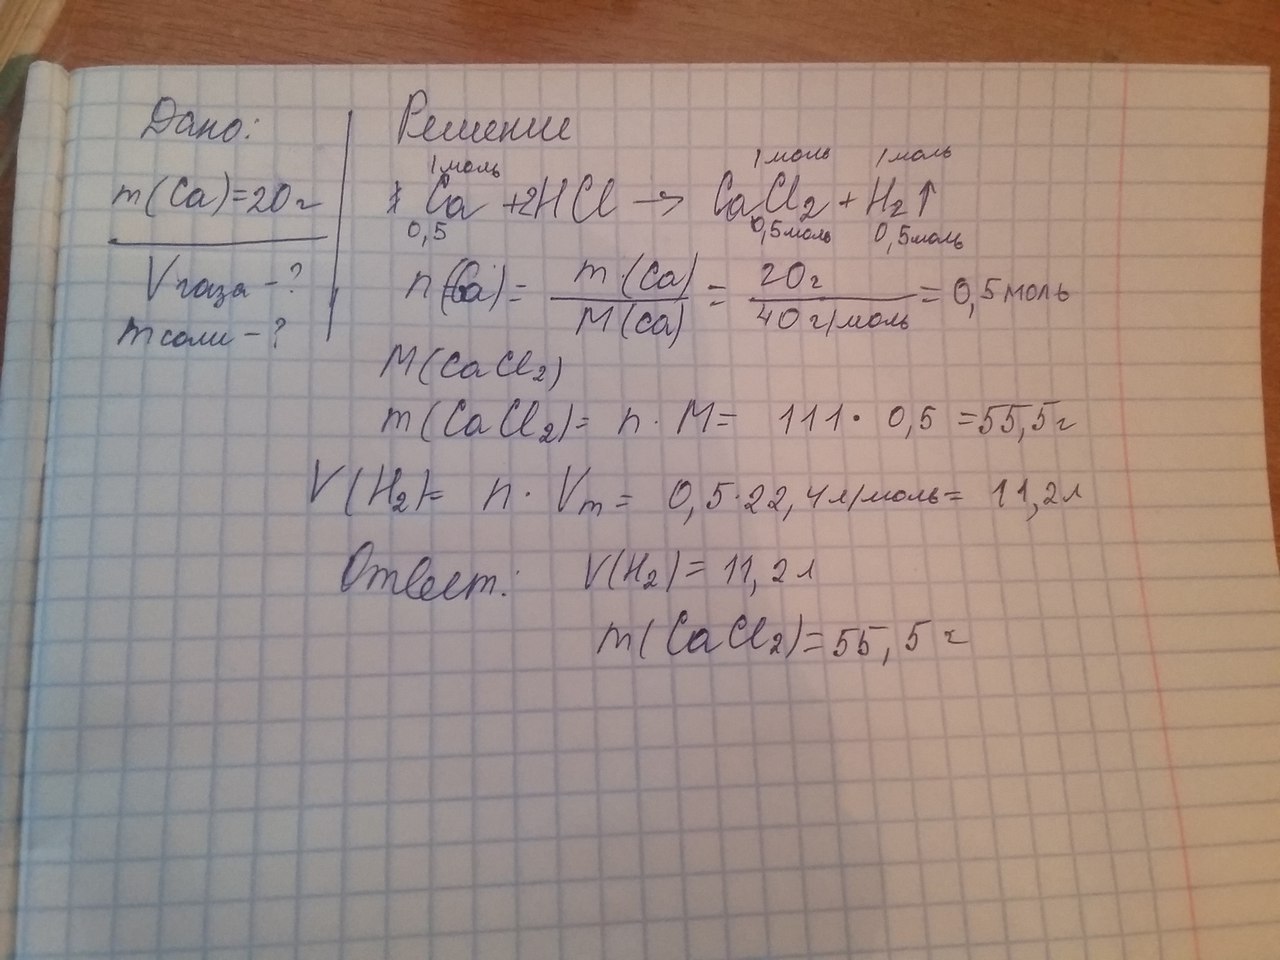 Дано:
m(Ca)=20г
Vгаза-?
mсоли-?
Решение
1моль 1моль 1моль
Ca+2HCl→CaCl2+H2↑
0,5 0,5моль 0,5моль
n(Ca)= m(Ca)/M(Ca) = 20г/40г/моль = 0,5моль
M(CaCl2)
m(CaCl2)= n·M= 111·0,5=55,5г
V(H2)= n·Vm= 0,5·22,4л/моль= 11,2л
Ответ: V(H2)=11,2л
m(CaCl2)=55,5г